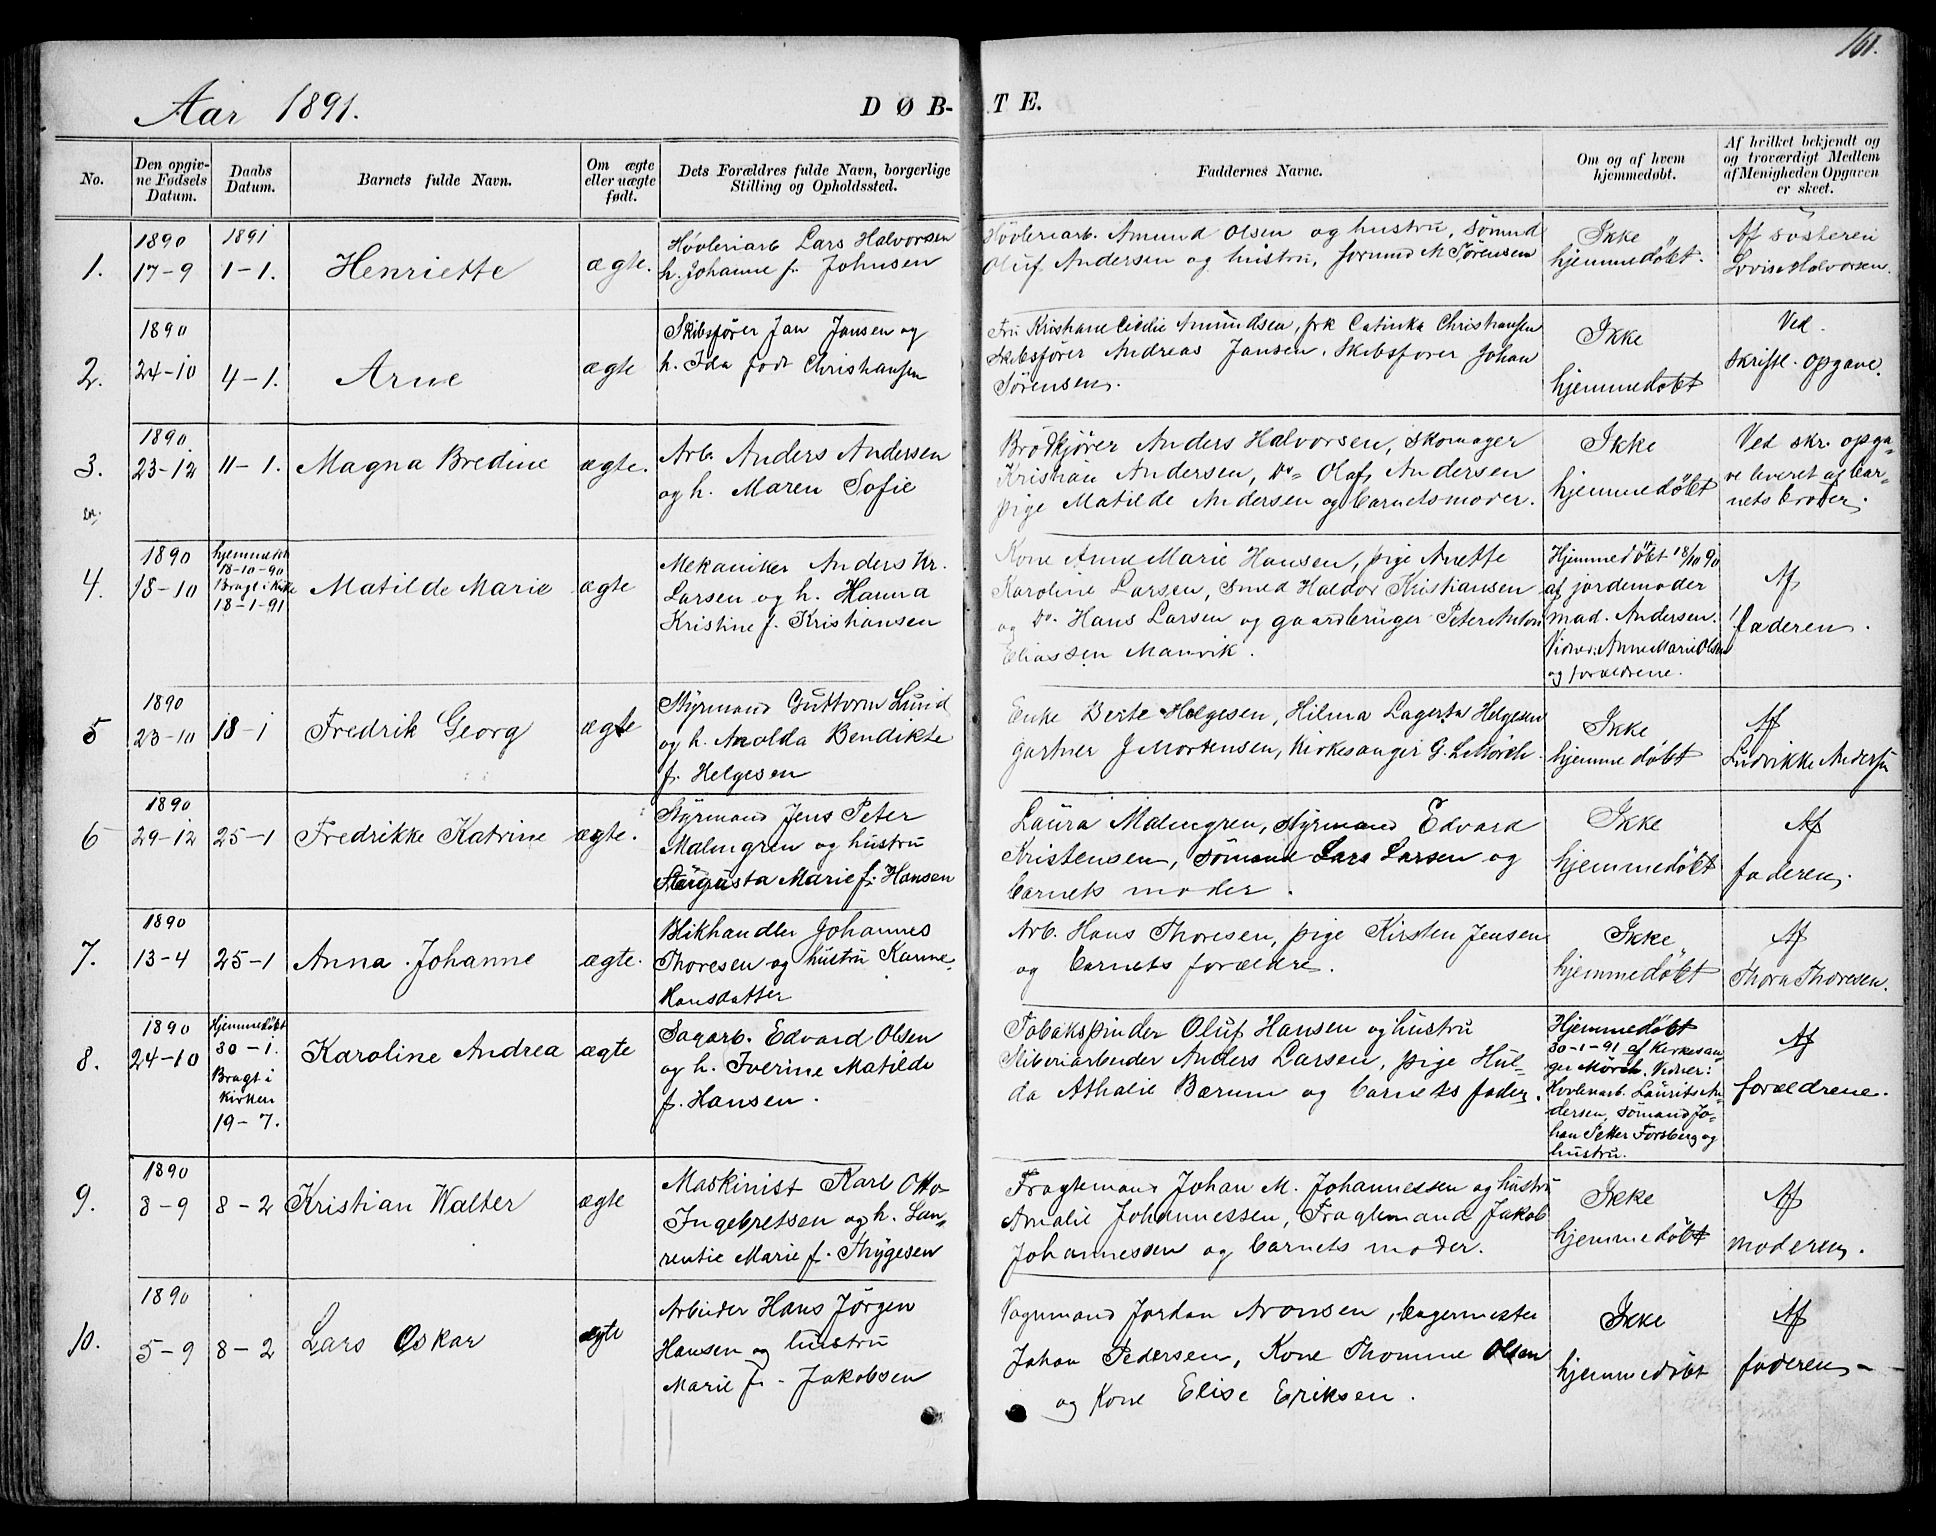 161.
Aar 1891.
DØB-
TE.
No.
Den opgiv-
ne Fødsels
Datum.
Daabs
Datum.
Barnets fulde Navn.
Om ægte
eller uægte
født.
Dets Forældres fulde Navn, borgerlige
Stilling og Opholdssted.
Faddernes Navne.
Om og af hvem
hjemmedøbt.
Af hvilket bekjendt og
og troværdigt Medlem
af Menigheden Opgaven
er skeet.
1.
1890
17-9
1891
1-1.
Henriette
ægte.
Høvleriarb Lars Halvorsen
h. Johanne f. Johnsen
Høvleriarb. Amund Olsen og hustru, Sømnd
Oluf Andersen og hustru, Jormnd M Sørensen
Ikke
hjemmedøbt.
Af søsteren
Lovise Halvorsen.
2.
1890
24-10
4-1.
Arne
ægte
Skibsfører Jan Jansen og
h. Ida født Christiansen
Fru Kristiane Cicilie Amundsen, frk Catinka Christiansen
Skibsfører Andreas Jansen. Skibsfører Johan
Sørensen.
Ikke
hjemmedøbt
Ved.
skriftl. opgave.
3.
1890
23-12
11-1.
Magna Bredine
ægte.
Arb. Anders Andersen
og h. Maren Sofie
Brødkjører Anders Halvorsen, skomager
Kristian Andersen, Do= Olaf Andersen
pige Matilde Andersen og barnets moder.
Ikke
hjemmedøbt
Ved skr. opga-
ve leveret af bar-
nets broder.
4.
1890
18-10
hjemmedøbt
18-10-90
Bragt i Kirke
18-1-91
Matilde Marie
ægte
Mekaniker Anders Kr.
Larsen og h. Hanna
Kristine f. Kristiansen
Kone Anne Marie Hansen, pige Anette
Karoline Larsen, Smed Haldor Kristiansen
og Do. Hans Larsen og gaardbruger Peter Anton
Eliassen Manvik.
Hjemmedøbt 18/10 90
af jordemoder
mad. Andersen.
Vidner: Anne Marie Olsen
og forældrene.
Af
faderen.
5
1890
23-10
18-1
Fredrik Georg
ægte
Styrmand Guttorm Lund
og h. Anolda Bendikte
f. Helgesen
Enke Berte Helgesen, Hilma Lagerta Helgesen
gartner J Mortensen, Kirkesanger G. L. Mørch.
Ikke
hjemmedøbt
Af
Ludvikke Andersen
6
1890
29-12
25-1
Fredrikke Katrine
ægte.
Styrmand Jens Peter
Malmgren og hustru
Augusta Marie f. Hansen
Laura Malmgren, Styrmand Edvard
Kristensen, sømand Lars Larsen og
barnets moder.
Ikke
hjemmedøbt
Af
faderen.
7.
1890
13-4
25-1
Anna Johanne
ægte.
Blikhandler Johannes
Thoresen og hustru Karine
Hansdatter
Arb. Hans Thoresen, pige Kirsten Jensen
og barnets forældre.
Ikke
hjemmedøbt
Af
Thora Thoresen.
8.
1890
24-10
Hjemmedøbt
30-1.
Bragt i
Kirken
19-7.
Karoline Andrea
ægte
Sagarb. Edvard Olsen
og h. Iverine Matilde
f. Hansen.
Tobakspinder Oluf Hansen og hustru
Sliberiarbeider Anders Larsen, pige Hul-
da Athalie Bærum og barnets fader.
Hjemmedøbt
30-1-91 af Kirkesan-
ger Mørch. Vidner:
Hovlenarb. Laurits An-
dersen, sømand Jo-
han Petter Forsberg og
hustru.
Af
forældrene.
9.
1890
3-9
8-2
Kristian Walter
ægte
Maskinist Karl Otto
Ingebretsen og h. Lau-
rentie Marie f. Thygesen
Fragtemand Johan M. Johannessen og hustru
Amalie Johannessen, Fragtemand Jakob
Johannessen og barnets moder.
Ikke
hjemmedøbt
Af
moderen.
10.
1890
5-9
8-2
Lars Oskar
ægte
Arbeider Hans Jörgen
Hansen og hustru
Marie f. Jakobsen
Vognmand Jordan Aronsen, bagermester
Johan Pedersen, Kone Thomine Olsen
og Kone Elise Eriksen.
Ikke
hjemmedøbt
Af
faderen